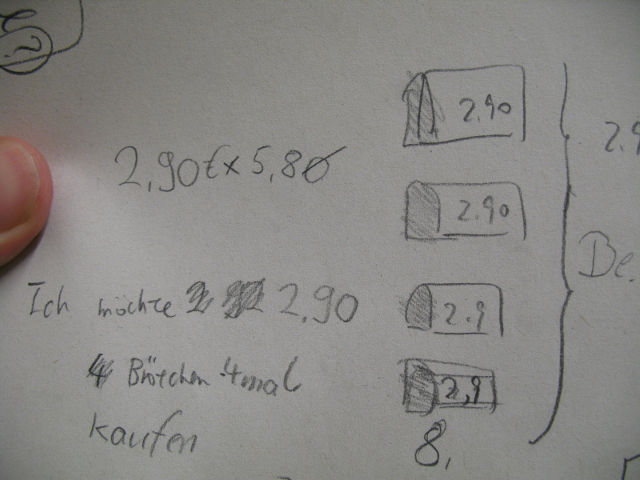 2.90
2,90€x 5,80
2.90
Ich möchte 2.90
2.9
4 Brötchen 4mal
2,9
kaufen
8,